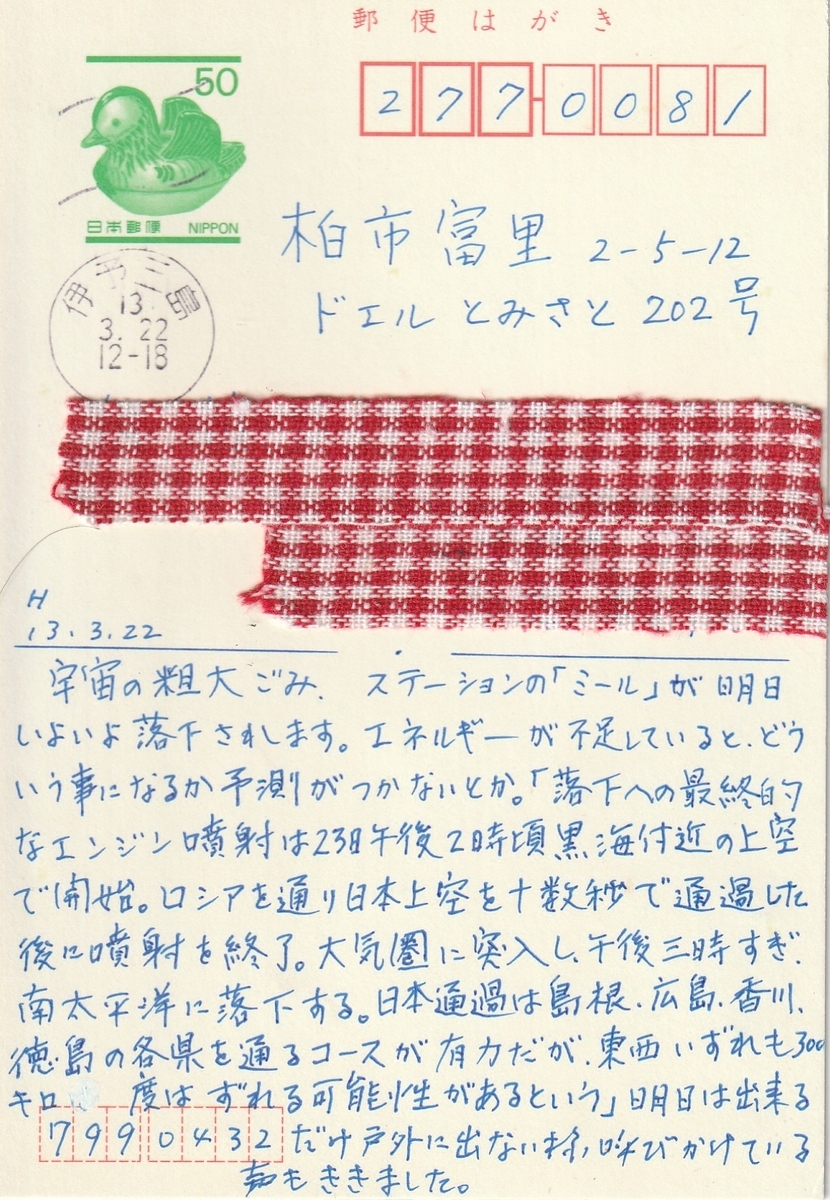 郵便はがき
50
日本郵便 NIPPON
277-0081
伊予三島
13.
3.22
12-18
柏市富里 2-5-12
ドエルとみさと 202号
H
13.3.22
宇宙の粗大ごみ、ステーションの「ミール」が明日
いよいよ落下されます。エネルギーが不足していると、どう
いう事になるか予測がつかないとか。「落下への最終的
なエンジン噴射は23日午後2時頃黒海付近の上空
で開始。ロシアを通り日本上空を十数秒で通過した
後に噴射を終了。大気圏に突入し、午後三時すぎ、
南太平洋に落下する。日本通過は島根、広島、香川、
徳島の各県を通るコースが有力だが、東西いずれも300
キロ 度はずれる可能性があるという」明日は出来る
7990432
だけ戸外に出ない様、呼びかけている
声もききました。